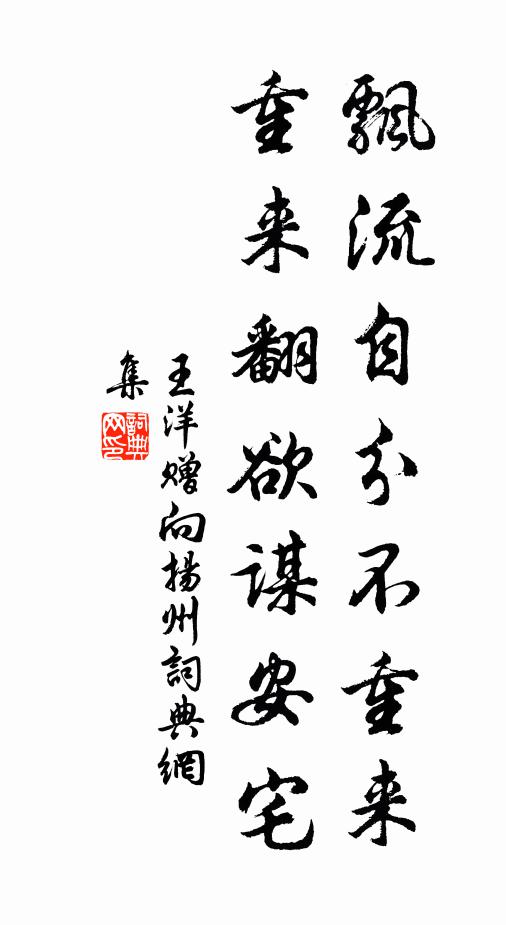 飄流自分不重来
重来翻欲谋安宅
王洋赠向揚州詞典網
集
詞典
网印